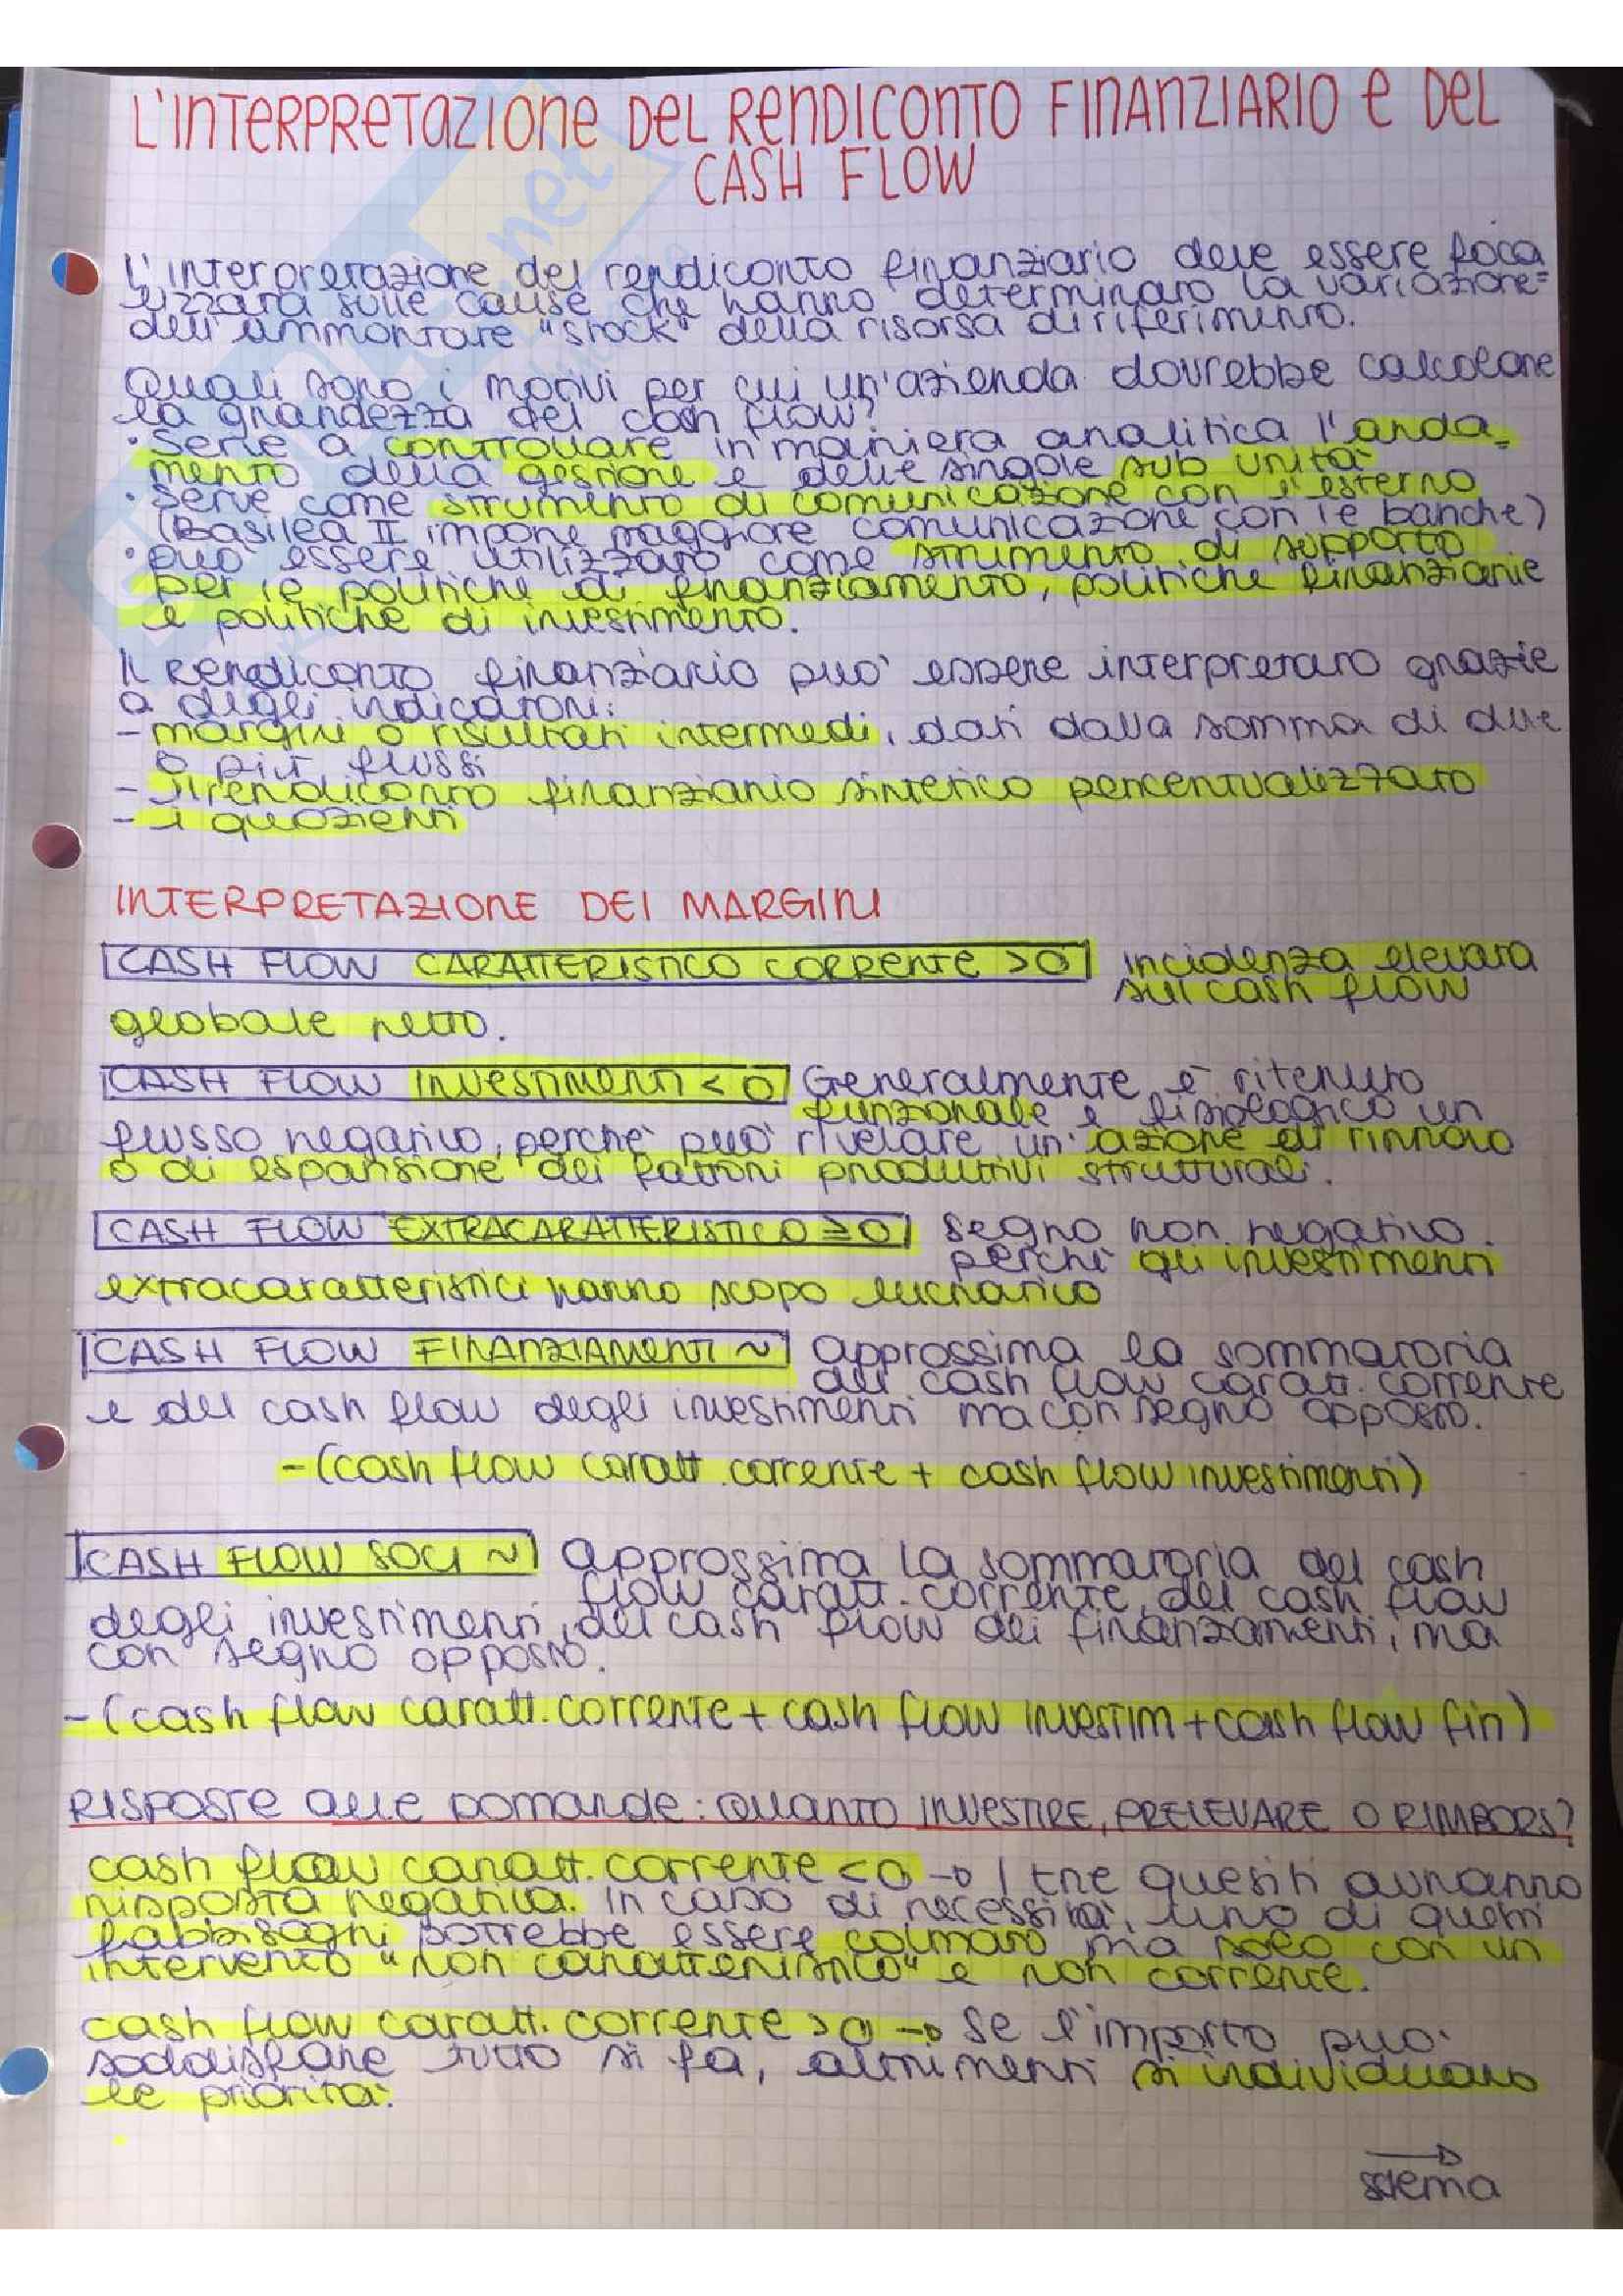 L'INTERPRETAZIONE DEL RENDICONTO FINANZIARIO E DEL
CASH FLOW
L'interpretazione del rendiconto finanziario deve essere foca
lizzata sulle cause che hanno determinato la variazione=
dell'ammontare "stock" della risorsa di riferimento.
Quali sono i motivi per cui un'azienda dovrebbe calcolare
la grandezza del cash flow?
• Serve a controllare in maniera analitica l'anda=
mento della gestione e delle singole sub unità
• Serve come strumento di comunicazione con l'esterno
(Basilea II impone maggiore comunicazione con le banche)
• può essere utilizzato come strumento di supporto
per le politiche di finanziamento, politiche finanziarie
e politiche di investimento.
Il rendiconto finanziario può essere interpretato grazie
a degli indicatori:
- margini o risultati intermedi, dati dalla somma di due
o più flussi
- Il rendiconto finanziario sintetico percentualizzato
- i quozienti
INTERPRETAZIONE DEI MARGINI
CASH FLOW CARATTERISTICO CORRENTE >0 incidenza elevata
sul cash flow
globale netto.
CASH FLOW INVESTIMENTI < 0 Generalmente è ritenuto
funzionale e fisiologico un
flusso negativo, perché può rivelare un'azione di rinnovo
o di espansione dei fattori produttivi strutturali.
CASH FLOW EXTRACARATTERISTICO ≥0 segno non negativo.
perché gli investimenti
extracaratteristici hanno scopo lucrativo
CASH FLOW FINANZIAMENTI ~ approssima la sommatoria
del cash flow caratt. corrente
e del cash flow degli investimenti ma con segno opposto.
-(cash flow caratt. corrente + cash flow investimenti)
CASH FLOW SOCI ~ approssima la sommatoria del cash
flow caratt. corrente, del cash flow
degli investimenti, del cash flow dei finanziamenti, ma
con segno opposto.
-(cash flow caratt. corrente + cash flow investim + cash flow fin)
RISPOSTE alle DOMANDE: QUANTO INVESTIRE, PRELEVARE O RIMBORS?
cash flow caratt. corrente <0 → I tre quesiti avranno
risposta negativa. In caso di necessità, uno di questi
fabbisogni potrebbe essere colmato ma solo con un
intervento "non caratteristico" e non corrente.
cash flow caratt. corrente >0 → Se l'importo può
soddisfare tutto si fa, altrimenti si individuano
le priorità.
→
schema